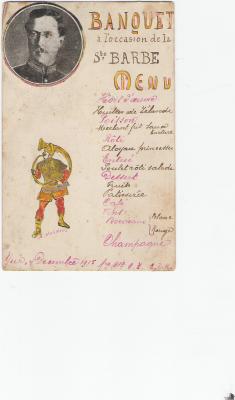 BANQUET
à l'occasion de la
Ste BARBE
MENU
Hors d'œuvre
Huîtres de Zélande
Poisson
Merlant frit sauce
Rôti
Aloyau princesses
Entrée
Poulet rôti salade
Dessert
Fruits
Patisserie
Café
Vins
Bordeaux
Blanc
Rouge
Champagne
Décembre 1915